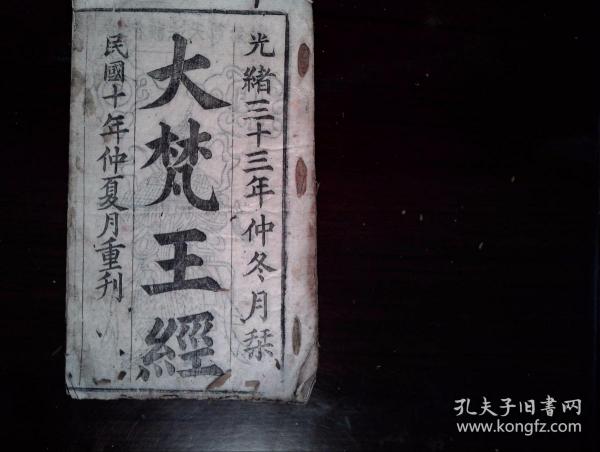 光緒三十三年仲冬月栞
大梵王經
民國十年仲夏月重刊
孔夫子旧書网
www.kongfz.com